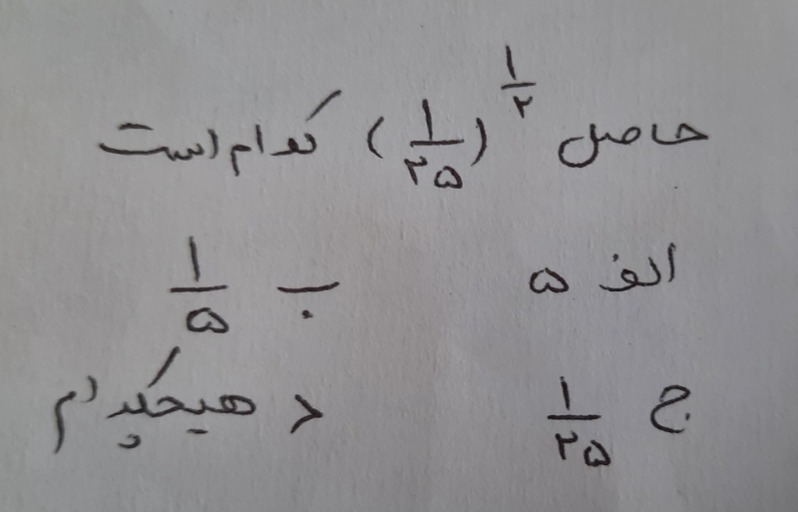 حاصل (۱/۲۵)^(۱/۲) کدام است
الف ۵ ب ۱/۵
ج ۱/۲۵ د هیچکدام